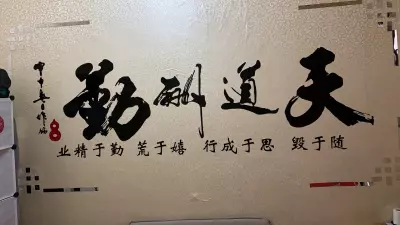 天道酬勤
业精于勤 荒于嬉 行成于思 毁于随